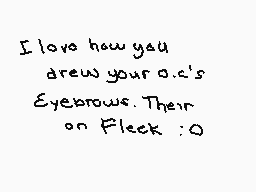 I love how you
drew your o.c's
Eyebrows. Their
on Fleek :O